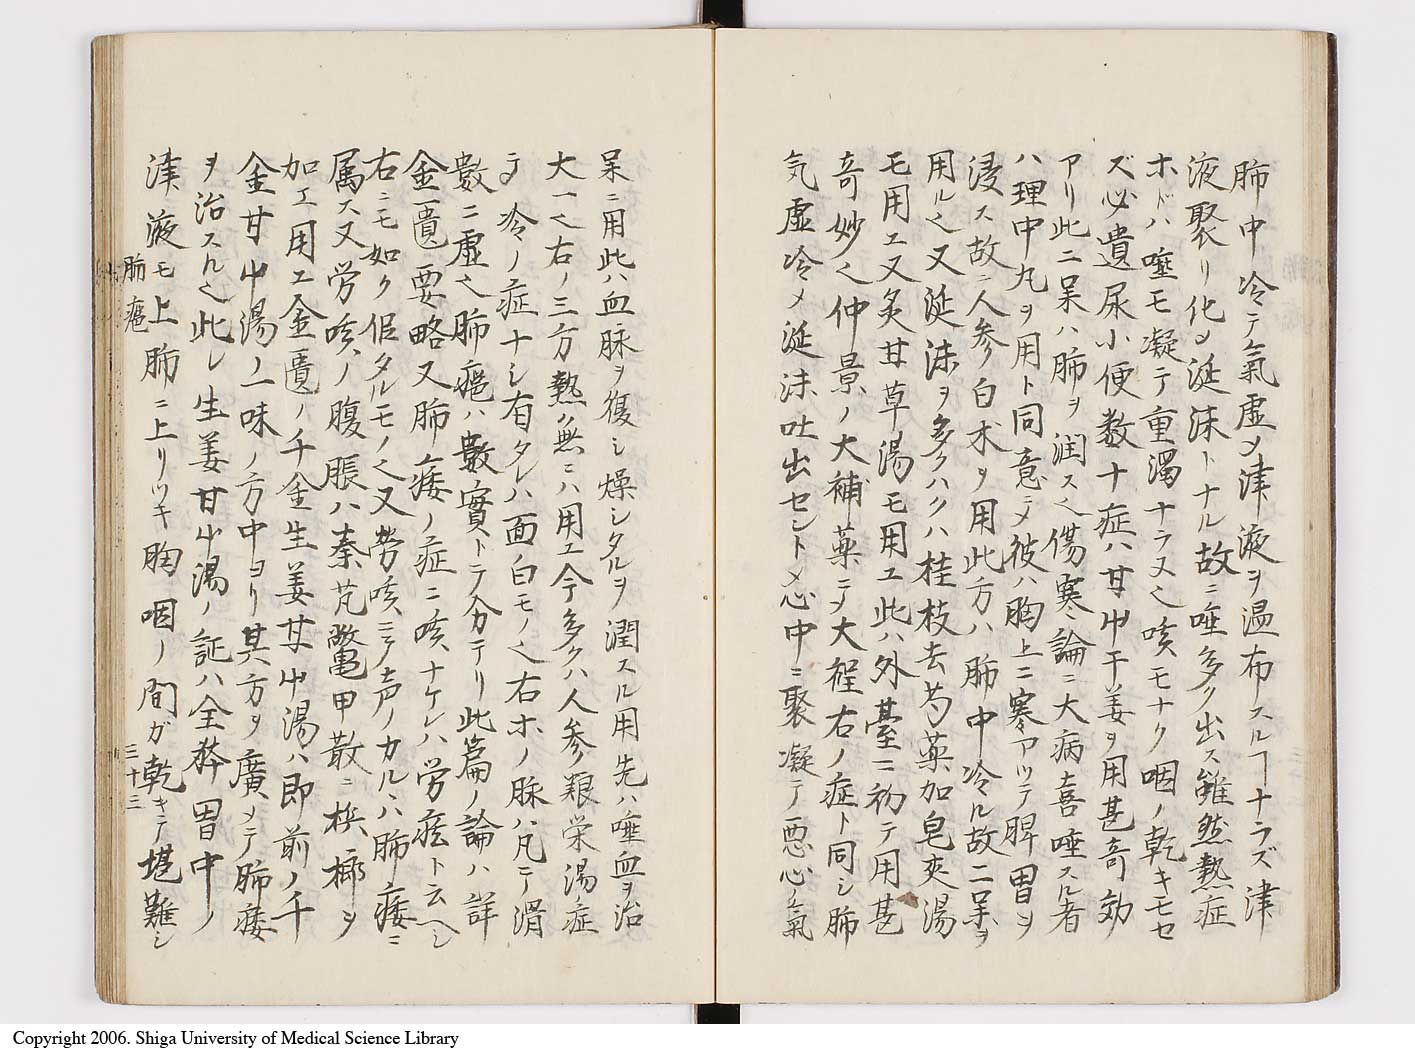 肺中冷テ氣虚メ津液ヲ温布スルヿナラズ津
液聚リ化メ涎沫トナル故ニ唾多ク出ス雖然熱症
ホドハ唾モ凝テ重濁ナラス又咳モナク咽ノ乾キモセ
ズ必遺尿小便数十症ハ甘屮干姜ヲ用甚奇効
アリ此二呆ハ肺ヲ潤ス傷寒論ニ大病喜唾スル者
ハ理中丸ヲ用ト同意ニメ彼ハ胸上ニ寒アツテ脾胃ヲ
浸ス故ニ人参白术ヲ用此方ハ肺中冷ル故二呆ヲ
用ル也又涎沫ヲ多クハクハ桂枝去芍薬加皂莢湯
モ用エ又炙甘草湯モ用エ此ハ外臺ニ初テ用甚
奇妙也仲景ノ大補薬ニメ大程右ノ症ト同シ肺
気虚冷メ涎沫吐出セントメ心中ニ聚凝テ悪心ノ氣
呆ニ用此ハ血脉ヲ復シ燥シタルヲ潤スル用先ハ唾血ヲ治
大一也右ノ三方熱ノ無ニハ用エ今多クハ人参養栄湯症
テ冷ノ症ナシ有タレハ面白モノ也右ホノ脉ハ凡テ滑
數ニ虚也肺癰ハ數實トテ分テリ此篇ノ論ハ詳
金匱要略又肺痿ノ症ニ咳ナケレハ労痎ト云ヘシ
右ニモ如ク假タルモノ也又労咳ニテ声ノカルハ肺痿ニ
属ス又労咳ノ腹脹ハ秦艽鱉甲散ニ梹榔ヲ
加エ用エ金匱ノ千金生姜甘屮湯ハ即前ノ千
金甘屮湯ノ一味ノ方中ヨリ其方ヲ廣メテ肺痿
ヲ治スル也此レ生姜甘屮湯ノ証ハ全躰胃中ノ
津液モ上肺ニ上リツキ胸咽ノ間ガ乾キテ堪難シ
肺癰 三十三
Copyright 2006. Shiga University of Medical Science Library